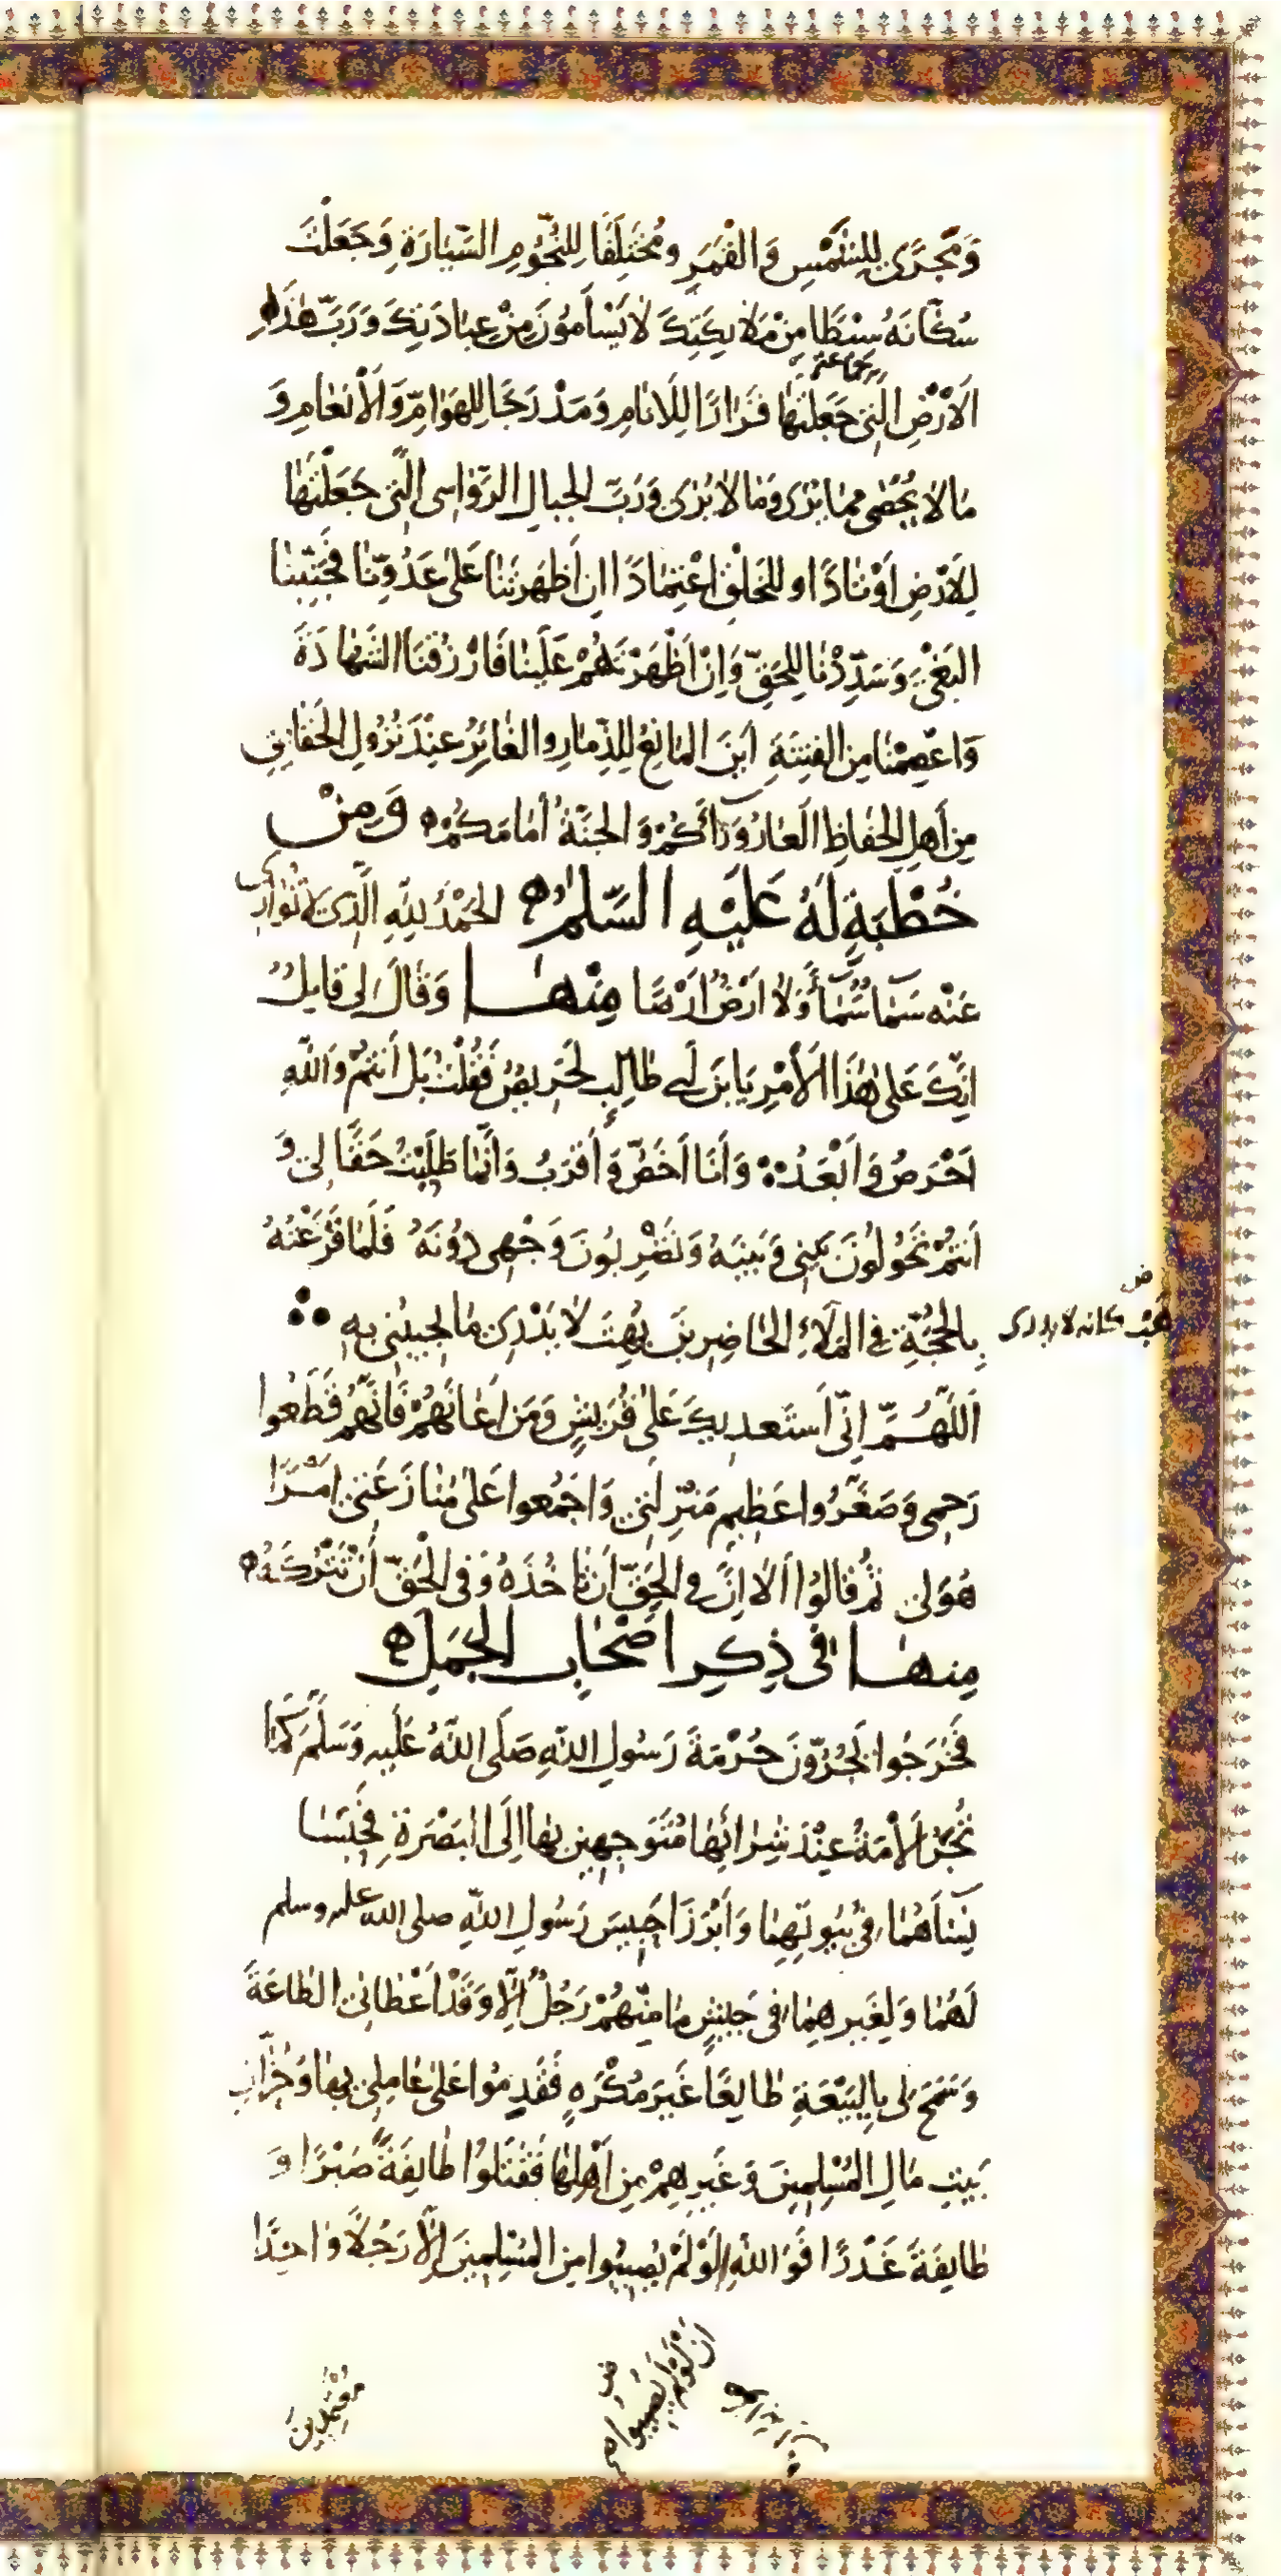 وَمَجْرًى لِلشَّمْسِ وَالْقَمَرِ وَمُخْتَلِفًا لِلنُّجُومِ السَّيّارَةِ وَجَعَلْتَ
سُكّانَهُ سِبْطًا مِنْ مَلائِكَتِكَ لا يَسْأَمُونَ مِنْ عِبادَتِكَ وَرَبَّ هٰذِهِ
الْاَرْضِ الَّتِي جَعَلْتَها قَرارًا لِلْاَنامِ وَمَدْرَجًا لِلْهَوامِّ وَالْأَنْعامِ وَ
مالا يُحْصٰى مِمّا يُرٰى وَمالا يُرٰى وَرَبَّ الجِبالِ الرَّواسِي الَّتِي جَعَلْتَها
لِلْاَرْضِ اَوْتادًا وللخَلْقِ اعْتِمادًا اِن اَظْهَرْتَنا عَلى عَدُوِّنا فَجَنِّبْنا
البَغْيَ وَسَدِّدْنا لِلْحَقِّ وَاِنْ اَظْهَرْتَهُمْ عَلَيْنا فَارْزُقْنَا الشَّهادَةَ
وَاعْصِمْنا مِنَ الفِتْنَةِ اَيْنَ المانِعُ لِلذِّمارِ والغائِرُ عِنْدَ نُزُولِ الحَقائِقِ
مِن اَهلِ الحِفاظِ العارُ وَرآءَكُمْ وَالجَنَّةُ أَمامَكُمْ ه وَمِنْ
خُطْبَةٍ لَهُ عَلَيْهِ السَّلمُ ه الحَمْدُ لِلّهِ الَّذِى لا تُوارِى
عَنْه سَمآءٌ سَمآءً وَلا اَرْضٌ اَرْضًا مِنْها وَقالَ لى قايِلٌ
اِنَّكَ عَلى هٰذَا الْأَمْرِ يا بنَ أبي طالِبٍ لَحَرِيصٌ فَقُلْتُ بَل أَنْتُمْ وَاللهِ
اَحْرَصُ وَاَبْعَدُ ه وَأَنا اَخَصُّ وَأَقْرَبُ وَاِنَّما طَلَبْتُ حَقًّا لِي وَ
اَنْتُمْ تَحُولُونَ بَيْنِي وَبَيْنَهُ وَتَضْرِبُونَ وَجْهِى دُونَهُ فَلَمّا قَرَعْتُهُ
بِالحُجَّةِ فِي المَلَاءِ الحاضِرِينَ بُهِتَ لا يَدْرِى ما يُجِيبُنِي بِهِ
اَللّهُمَّ اِنِّي اَسْتَعدِيكَ عَلى قُرَيْشٍ وَمَن اَعانَهُمْ فَاِنَّهُمْ قَطَعُوا
رَحِمِى وَصَغَّرُوا عَظِيمَ مَنْزِلَتِي وَاَجْمَعُوا عَلى مُنازَعَتِي اَمْرًا
هُوَ لِى ثُمَّ قالُوا أَلا اِنَّ فِي الحَقِّ اَن تَاخُذَهُ وَفِى الْحَقِّ أَنْ تَتْرُكَهُ ه
مِنها فى ذِكرِ اَصْحابِ الجَمَلِ ه
فَخَرَجُوا يَجُرُّونَ حُرْمَةَ رَسُولِ اللهِ صَلَّى اللهُ عَلَيهِ وَسَلَّمَ كَما
تُجَرُّ الْأَمَةُ عِنْدَ شِرائِها مُتَوَجِّهِينَ بِها اِلَى البَصْرَةِ فَحَبَسَا
نِسَآءَهُما فِي بُيُوتِهِما وَاَبْرَزَا حَبِيسَ رَسُولِ اللهِ صلى الله عليه وسلم
لَهُما وَلِغَيرِهِما فِى جَيْشٍ ما مِنْهُمْ رَجُلٌ اِلَّا وَقَدْ اَعْطانِي الطّاعَةَ
وَسَمَحَ لِى بِالبَيْعَةِ طايِعًا غَيرَ مُكْرَهٍ فَقَدِمُوا عَلى عامِلِي بِها وَخُزّانِ
بَيتِ مالِ المُسْلِمِينَ وَغَيرِهِمْ مِن اَهْلِها فَقَتَلُوا طايِفَةً صَبْرًا وَ
طايِفَةً غَدْرًا فَوَ اللهِ لَوْ لَمْ يُصِيبُوا مِنَ المُسْلِمِينَ اِلّا رَجُلًا واحِدًا
مُعْتَمِدِينَ